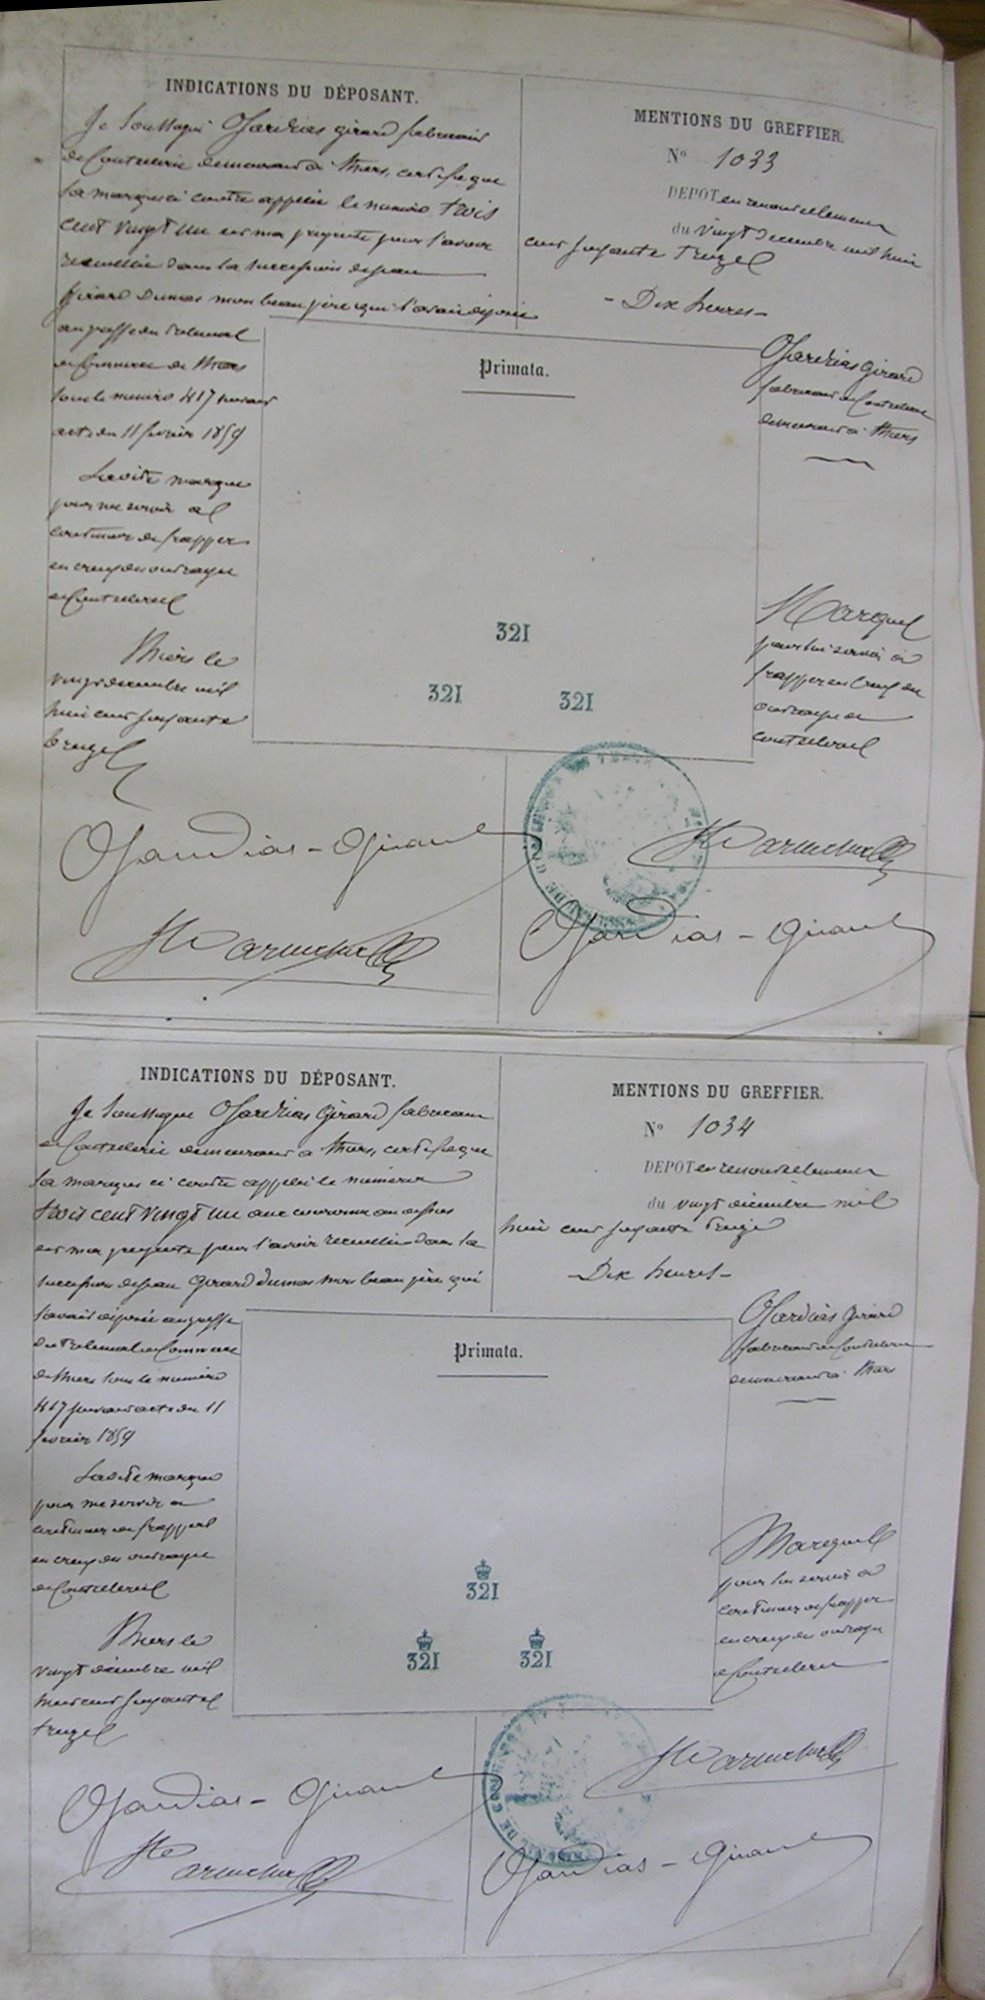 INDICATIONS DU DÉPOSANT.
Je soussigné Ojardias girard fabricant
de Coutellerie demeurant à Thiers, certifie que
la marque ci contre appelée le numéro trois
cent vingt un est ma propriété pour l'avoir
recueillie dans la succession de feu
girard dumas mon beau père qui l'avait déposée
au greffe du tribunal
de Commerce de Thiers
sous le numéro 417 suivant
acte du 11 février 1859
Ladite marque
pour me servir à
continuer de frapper
en creux des ouvrages
de Coutellerie
Thiers le
vingt décembre mil
huit cent soixante
treize
Ojardias-Girard
MENTIONS DU GREFFIER.
No 1033
DEPOT en renouvellement
du vingt décembre mil huit
cent soixante treize
- Dix heures -
Primata.
Ojardias girard
fabricant de Coutellerie
demeurant à Thiers
Marque
pour lui servir à
frapper en creux des
ouvrages de
coutellerie
321
321 321
Ojardias-Girard
INDICATIONS DU DÉPOSANT.
Je soussigné Ojardias Girard fabricant
de Coutellerie demeurant à Thiers, certifie que
la marque ci contre appelée le numéro
trois cent vingt un avec couronne au dessus
est ma propriété pour l'avoir recueillie dans la
succession de feu Girard dumas mon beau père qui
l'avait déposée au greffe
du tribunal de Commerce
de Thiers sous le numéro
417 suivant acte du 11
février 1859
Ladite marque
pour me servir à
continuer de frapper
en creux des ouvrages
de Coutellerie
Thiers le
vingt décembre mil
huit cent soixante
treize
Ojardias-Girard
MENTIONS DU GREFFIER.
No 1034
DEPOT en renouvellement
du vingt décembre mil
huit cent soixante treize
- Dix heures -
Primata.
Ojardias Girard
fabricant de Coutellerie
demeurant à Thiers
Marque
pour lui servir à
continuer de frapper
en creux des ouvrages
de Coutellerie
321
321 321
Ojardias-Girard